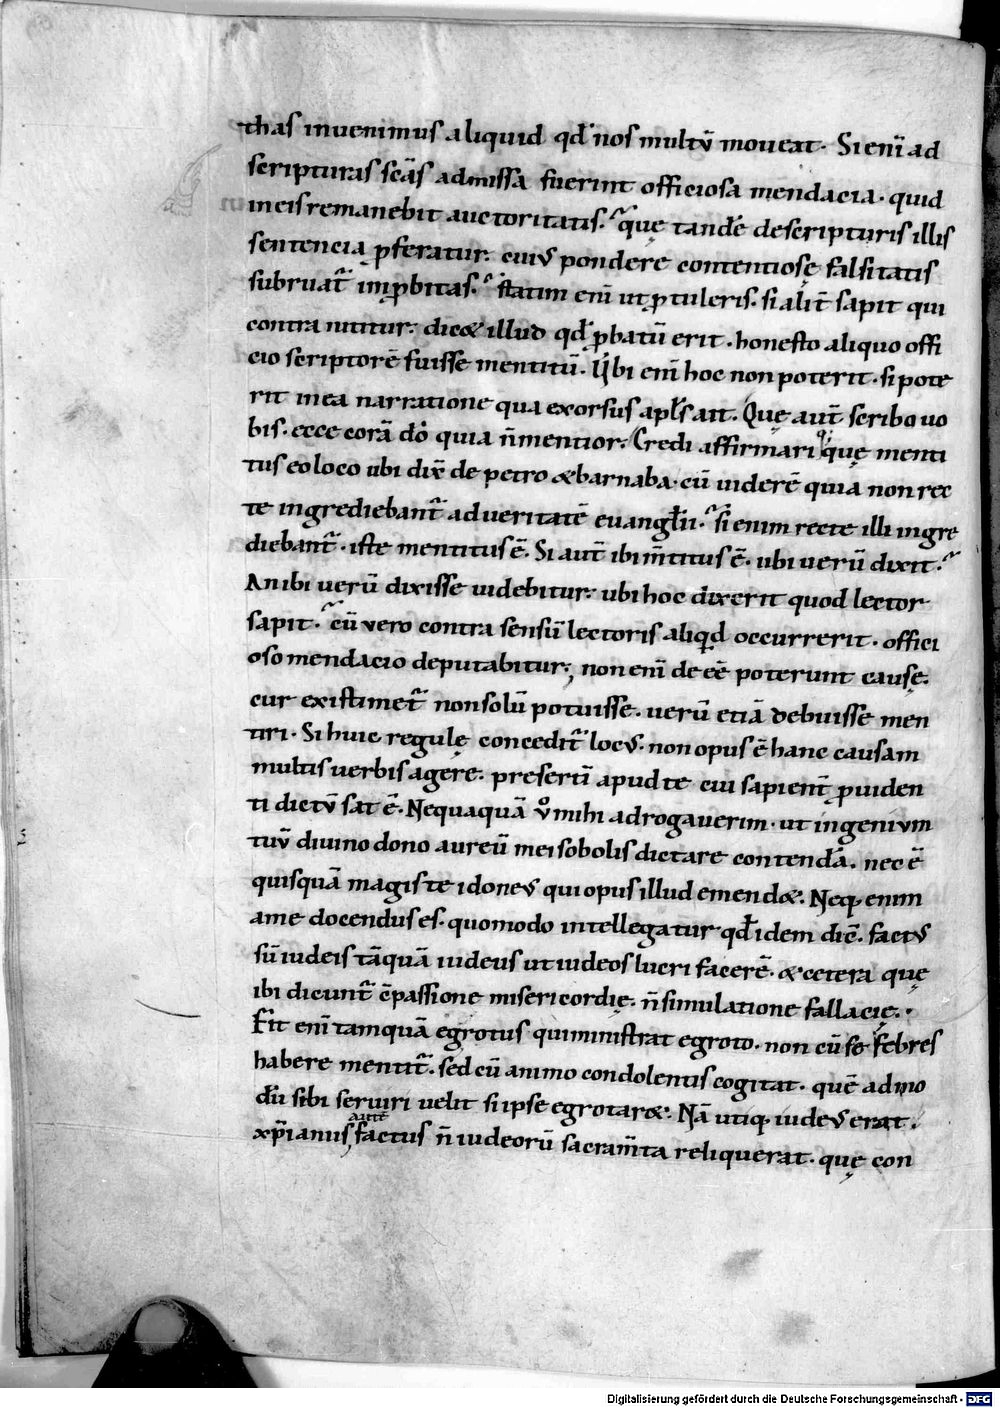 thas inuenimus aliquid qđ nos multū moueat. Si enī ad
scripturas scās admissa fuerint officiosa mendacia. quid
in eis remanebit auctoritatis. quę tandē de scripturis illis
sentencia ꝓferatur. cuiꝰ pondere contentiosę falsitatis
subruat̄ imꝓbitas. statim enī ut ꝓtuleris. si alit̄ sapit qui
contra nititur. dic& illud qđ ꝓbatū erit. honesto aliquo offi
cio scriptorē fuisse mentitū. Ubi enī hoc non poterit. si pote
rit in ea narratione qua exorsus apłs ait. Quę aut̄ scribo uo
bis. ecce corā dō quia n̄ mentior. Credi affirmari q; quę menti
tus eo loco ubi dix̄ de petro & barnaba. cū uiderē quia non rec
te ingrediebant̄ ad ueritatē euangłii. si enim recte illi ingre
diebant̄. iste mentitus ē. Si aut̄ ibi m̄titus ē. ubi uerū dixit.
An ibi uerū dixisse uidebitur. ubi hoc dixerit quod lector
sapit. cū vero contra sensū lectoris aliqid occurrerit. offici
oso mendacio deputabitur; non enī de eē poterunt causę.
cur existimet̄ non solū potuisse. uerū etiā debuisse men
tiri. Si huic regulę concedit̄ locꝰ. non opus ē hanc causam
multis uerbis agere. presertī apud te cui sapient̄ ꝓuiden
ti dictū sat ē. Nequaquā v̊ mihi adrogauerim. ut ingenivm
tuū diuino dono aureū meis obolis dictare contendā. nec ē
quisquā magis te idoneꝰ qui opus illud emend&. Neq; enim
a me docendus es. quomodo intellegatur qđ idem dic̄. factꝰ
sū iudeis tāquā iudeus ut iudeos lucri facerē. & cetera quę
ibi dicunt̄ c̄passione misericordię. n̄ simulatione fallacię.
Fit enī tamquā egrotus qui ministrat egroto. non cū se febres
habere mentit̄. sed cū animo condolentis cogitat. quē admo
dū sibi seruiri uelit si ipse egrotar&. Nā utiq; iudeꝰ erat.
xp̄ianus autē factus n̄ iudeorū sacram̄ta reliquerat. quę con
Digitalisierung gefördert durch die Deutsche Forschungsgemeinschaft - DFG